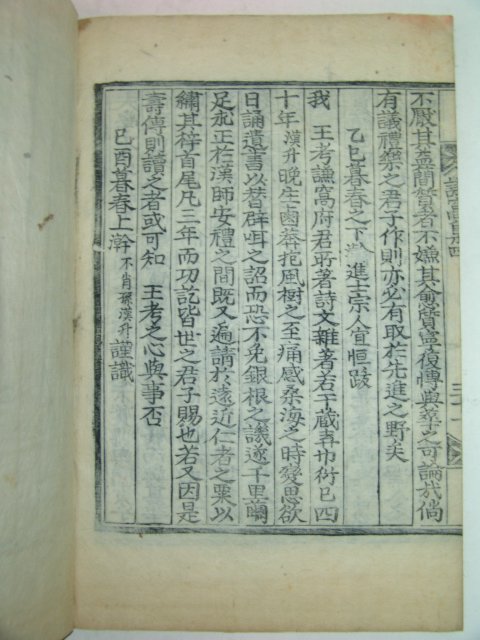 不厭其盡簡贊者不嫌其
有議禮樂之君子作則亦必有取於先進之野矣
乙巳暮春之下澣進士宗人 恒跋
我 王考謙窩府君所著詩文雜著若干藏弆巾衍已四
十年漢升晚生 抱風樹之至痛感桑海之時變思欲
日誦遺書以替群 之詔而恐不免銀根之譏遂千里
足 正於漢師安禮之間既又遍請於遠近仁者之粟以
繡其梓首尾凡三年而功訖皆世之君子賜也若又因是
壽傳則讀之者或可知 王考之心與事否
己酉暮春上澣 不肖孫漢升謹識